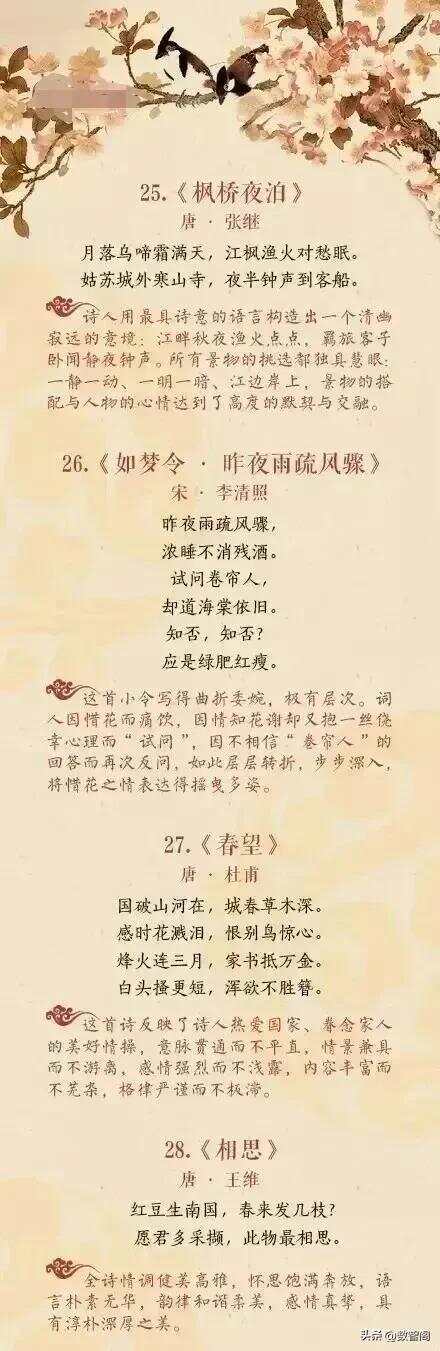 25.《枫桥夜泊》
唐 · 张继
月落乌啼霜满天，江枫渔火对愁眠。
姑苏城外寒山寺，夜半钟声到客船。
诗人用最具诗意的语言构造出一个清幽
寂远的意境：江畔秋夜渔火点点，羁旅客子
卧闻静夜钟声。所有景物的挑选都独具慧眼：
一静一动、一明一暗、江边岸上，景物的搭
配与人物的心情达到了高度的默契与交融。
26.《如梦令 · 昨夜雨疏风骤》
宋 · 李清照
昨夜雨疏风骤，
浓睡不消残酒。
试问卷帘人，
却道海棠依旧。
知否，知否？
应是绿肥红瘦。
这首小令写得曲折委婉，极有层次。词
人因惜花而痛饮，因情知花谢却又抱一丝侥
幸心理而“试问”，因不相信“卷帘人”的
回答而再次反问，如此层层转折，步步深入，
将惜花之情表达得摇曳多姿。
27.《春望》
唐 · 杜甫
国破山河在，城春草木深。
感时花溅泪，恨别鸟惊心。
烽火连三月，家书抵万金。
白头搔更短，浑欲不胜簪。
这首诗反映了诗人热爱国家、眷念家人
的美好情操，意脉贯通而不平直，情景兼具
而不游离，感情强烈而不浅露，内容丰富而
不芜杂，格律严谨而不板滞。
28.《相思》
唐 · 王维
红豆生南国，春来发几枝？
愿君多采撷，此物最相思。
全诗情调健美高雅，怀思饱满奔放，语
言朴素无华，韵律和谐柔美，感情真挚，具
有淳朴深厚之美。
头条 @数智阁